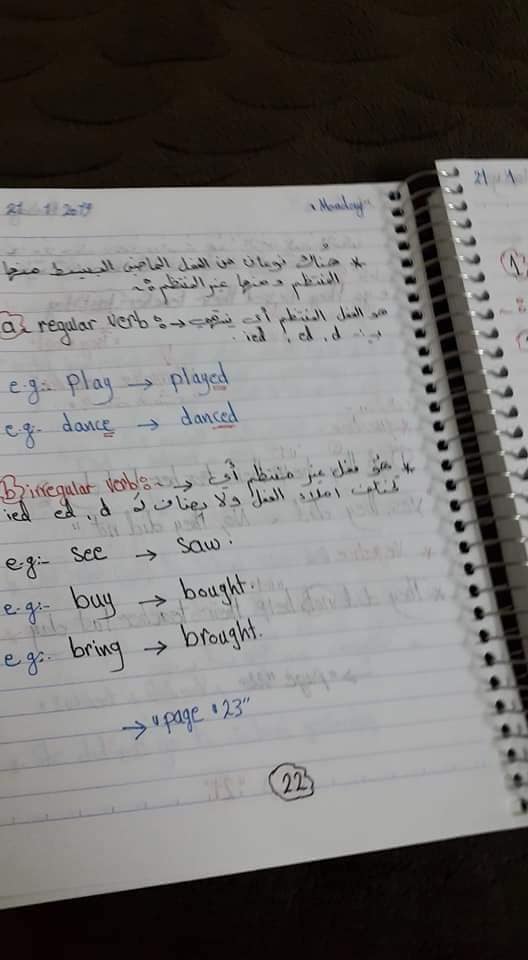 21 1 2019 "Monday"
* هناك نوعان من الفعل الماضي البسيط منها
المنتظم ومنها غير المنتظم :-
a) regular verb :→ هو الفعل المنتظم أي ينتهي
بـ ied , ed , d .
e.g:- play → played
e.g:- dance → danced
b) irregular verb :- * هو فعل غير منتظم أي
املاء الفعل ولا يضاف له ied ed , d
e.g:- see → saw.
e.g:- buy → bought.
e.g:- bring → brought.
→ "page "23"
22
21 1
1